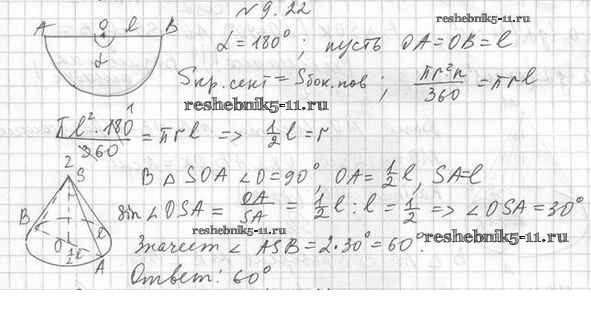 № 9.22
reshebnik5-11.ru
A O l B
α
α = 180°; пусть OA = OB = l
Sкр.сект = Sбок.пов; πr²n/360 = πrl
reshebnik5-11.ru
πl²·180/360 = πrl => 1/2 l = r
1
2
S
B
O
1/2 l
A
l
В △ SOA ∠O = 90°, OA = 1/2 l, SA = l
sin ∠OSA = OA/SA = 1/2 l : l = 1/2 => ∠OSA = 30°
reshebnik5-11.ru
Значит ∠ ASB = 2·30° = 60°.
reshebnik5-11.ru
Ответ: 60°